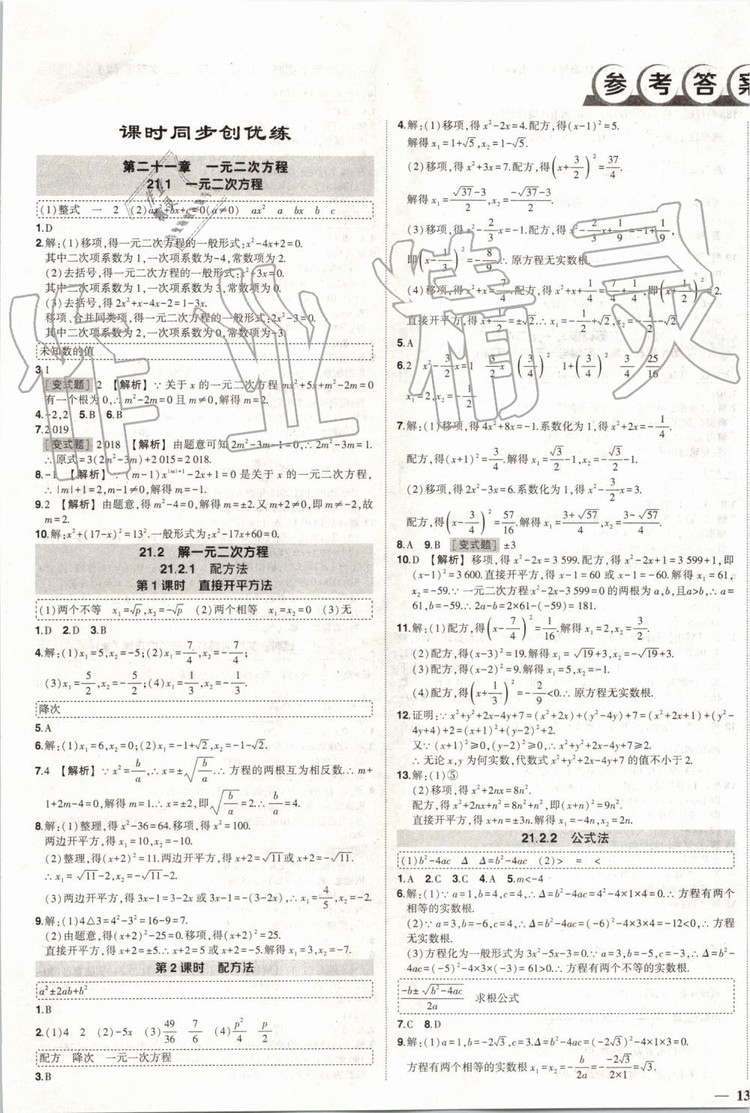 参考答案
课时同步创优练
第二十一章 一元二次方程
21.1 一元二次方程
(1)整式 一 2 (2)ax²+bx+c=0(a≠0) ax² a bx b c
1.D
2.解:(1)移项,得一元二次方程的一般形式:x²-4x+2=0.
其中二次项系数为1,一次项系数为-4,常数项为2.
(2)去括号,得一元二次方程的一般形式:x²+3x=0.
其中二次项系数为1,一次项系数为3,常数项为0.
(3)去括号,得2x²+x-4x-2=1-3x.
移项,合并同类项,得一元二次方程的一般形式:2x²-3=0.
其中二次项系数为2,一次项系数为0,常数项为-3.
未知数的值
3.1
[变式题] 2 【解析】∵关于x的一元二次方程mx²+5x+m²-2m=0
有一个根为0,∴m²-2m=0且m≠0.解得m=2.
4.-2,2 5.B 6.B
7.2 019
[变式题] 2 018 【解析】由题意可知2m²-3m-1=0,∴2m²-3m=1.
∴原式=3(2m²-3m)+2 015=2 018.
8.-1 【解析】∵(m-1)x^|m|+1-2x+1=0是关于x的一元二次方程,
∴|m|+1=2,m-1≠0,解得m=-1.
9.2 【解析】由题意,得m²-4=0,解得m=±2.又m+2≠0,即m≠-2,故
m=2.
10.解:x²+(17-x)²=13².一般形式为:x²-17x+60=0.
21.2 解一元二次方程
21.2.1 配方法
第1课时 直接开平方法
(1)两个不等 x₁=√p,x₂=-√p (2)两个相等 x₁=x₂=0 (3)无
1.D 2.D 3.B
4.解:(1)x₁=5,x₂=-5;(2)x₁=7/4,x₂=-7/4;
(3)x₁=5/2,x₂=-5/2;(4)x₁=1/3,x₂=-1/3.
降次
5.A
6.解:(1)x₁=6,x₂=0;(2)x₁=-1+√2,x₂=-1-√2.
7.4 【解析】∵x²=b/a,∴x=±√(b/a).∴方程的两根互为相反数.∴m+
1+2m-4=0,解得m=1.∴x=±2,即√(b/a)=2.∴b/a=4.
8.解:(1)整理,得x²-36=64.移项,得x²=100.
两边开平方,得x₁=10,x₂=-10.
(2)整理,得(x+2)²=11.两边开平方,得x+2=√11或x+2=-√11.
∴x₁=√11-2,x₂=-√11-2.
(3)两边开平方,得3x-1=3-2x或3x-1=-3+2x,∴x₁=4/5,x₂=-2.
9.解:(1)4△3=4²-3²=16-9=7.
(2)由题意,得(x+2)²-25=0.移项,得(x+2)²=25.
直接开平方,得x+2=±5.∴x+2=5或x+2=-5.∴x₁=3,x₂=-7.
第2课时 配方法
a²±2ab+b²
1.B
2.(1)4 2 (2)-5x (3)49/36 7/6 (4)p²/4 p/2
配方 降次 一元一次方程
3.B
4.解:(1)移项,得x²-2x=4.配方,得(x-1)²=5.
解得x₁=1+√5,x₂=1-√5.
(2)移项,得x²+3x=7.配方,得(x+3/2)²=37/4.
解得x₁=(√37-3)/2,x₂=(-√37-3)/2.
(3)移项,得x²-2/3x=-1.配方,得x²-2/3x+1/9=-1+1/9,
即(x-1/3)²=-8/9.∴原方程无实数根.
5.A
7.解:(1)移项,得4x²+8x=-1.系数化为1,得x²+2x=-1/4.
配方,得(x+1)²=3/4.解得x₁=√3/2-1,x₂=-√3/2-1.
(2)移项,得2x²-3x=6.系数化为1,得x²-3/2x=3.
配方,得(x-3/4)²=57/16.解得x₁=(3+√57)/4,x₂=(3-√57)/4.
8.A 9.B [变式题] ±3
10.D 【解析】移项,得x²-2x=3 599.配方,得x²-2x+1=3 599+1,即
(x-1)²=3 600.直接开平方,得x-1=60或x-1=-60.解得x₁=61,
x₂=-59.∵一元二次方程x²-2x-3 599=0的两根为a,b,且a>b,∴a=
61,b=-59.∴2a-b=2×61-(-59)=181.
11.解:(1)配方,得(x-7/4)²=1/16.解得x₁=2,x₂=3/2.
(2)配方,得(x-3)²=19.解得x₁=√19+3,x₂=-√19+3.
(3)配方,得(x-2)²=9.解得x₁=5,x₂=-1.
(4)配方,得(x+1/3)²=-2/9<0.∴原方程无实数根.
12.证明:∵x²+y²+2x-4y+7=(x²+2x)+(y²-4y)+7=(x²+2x+1)+(y²-
4y+4)+2=(x+1)²+(y-2)²+2.
又∵(x+1)²≥0,(y-2)²≥0,∴(x+1)²+(y-2)²+2≥2.
∴无论x,y为何实数,代数式x²+y²+2x-4y+7的值不小于2.
13.解:(1)⑤
(2)移项,得x²+2nx=8n².
配方,得x²+2nx+n²=8n²+n²,即(x+n)²=9n².
直接开平方,得x+n=±3n.解得x₁=-4n,x₂=2n.
21.2.2 公式法
(1)b²-4ac Δ Δ=b²-4ac (2)> = <
1.A 2.C 3.A 4.A 5.m<-4
6.解:(1)∵a=1,b=4,c=4,∴Δ=b²-4ac=4²-4×1×4=0.∴方程有两个
相等的实数根.
(2)∵a=3,b=-6,c=4,∴Δ=b²-4ac=(-6)²-4×3×4=-12<0,∴方程
无实数根.
(3)方程化为一般形式为3x²-5x-3=0.∵a=3,b=-5,c=-3,∴Δ=b²-
4ac=(-5)²-4×3×(-3)=61>0.∴方程有两个不等的实数根.
(-b±√(b²-4ac))/2a 求根公式
7.C 8.D
9.解:(1)∵a=1,b=-2√3,c=3,∴Δ=b²-4ac=(-2√3)²-4×1×3=0.
方程有两个相等的实数根x₁=x₂=-b/2a=-(-2√3)/(2×1)=√3.
13